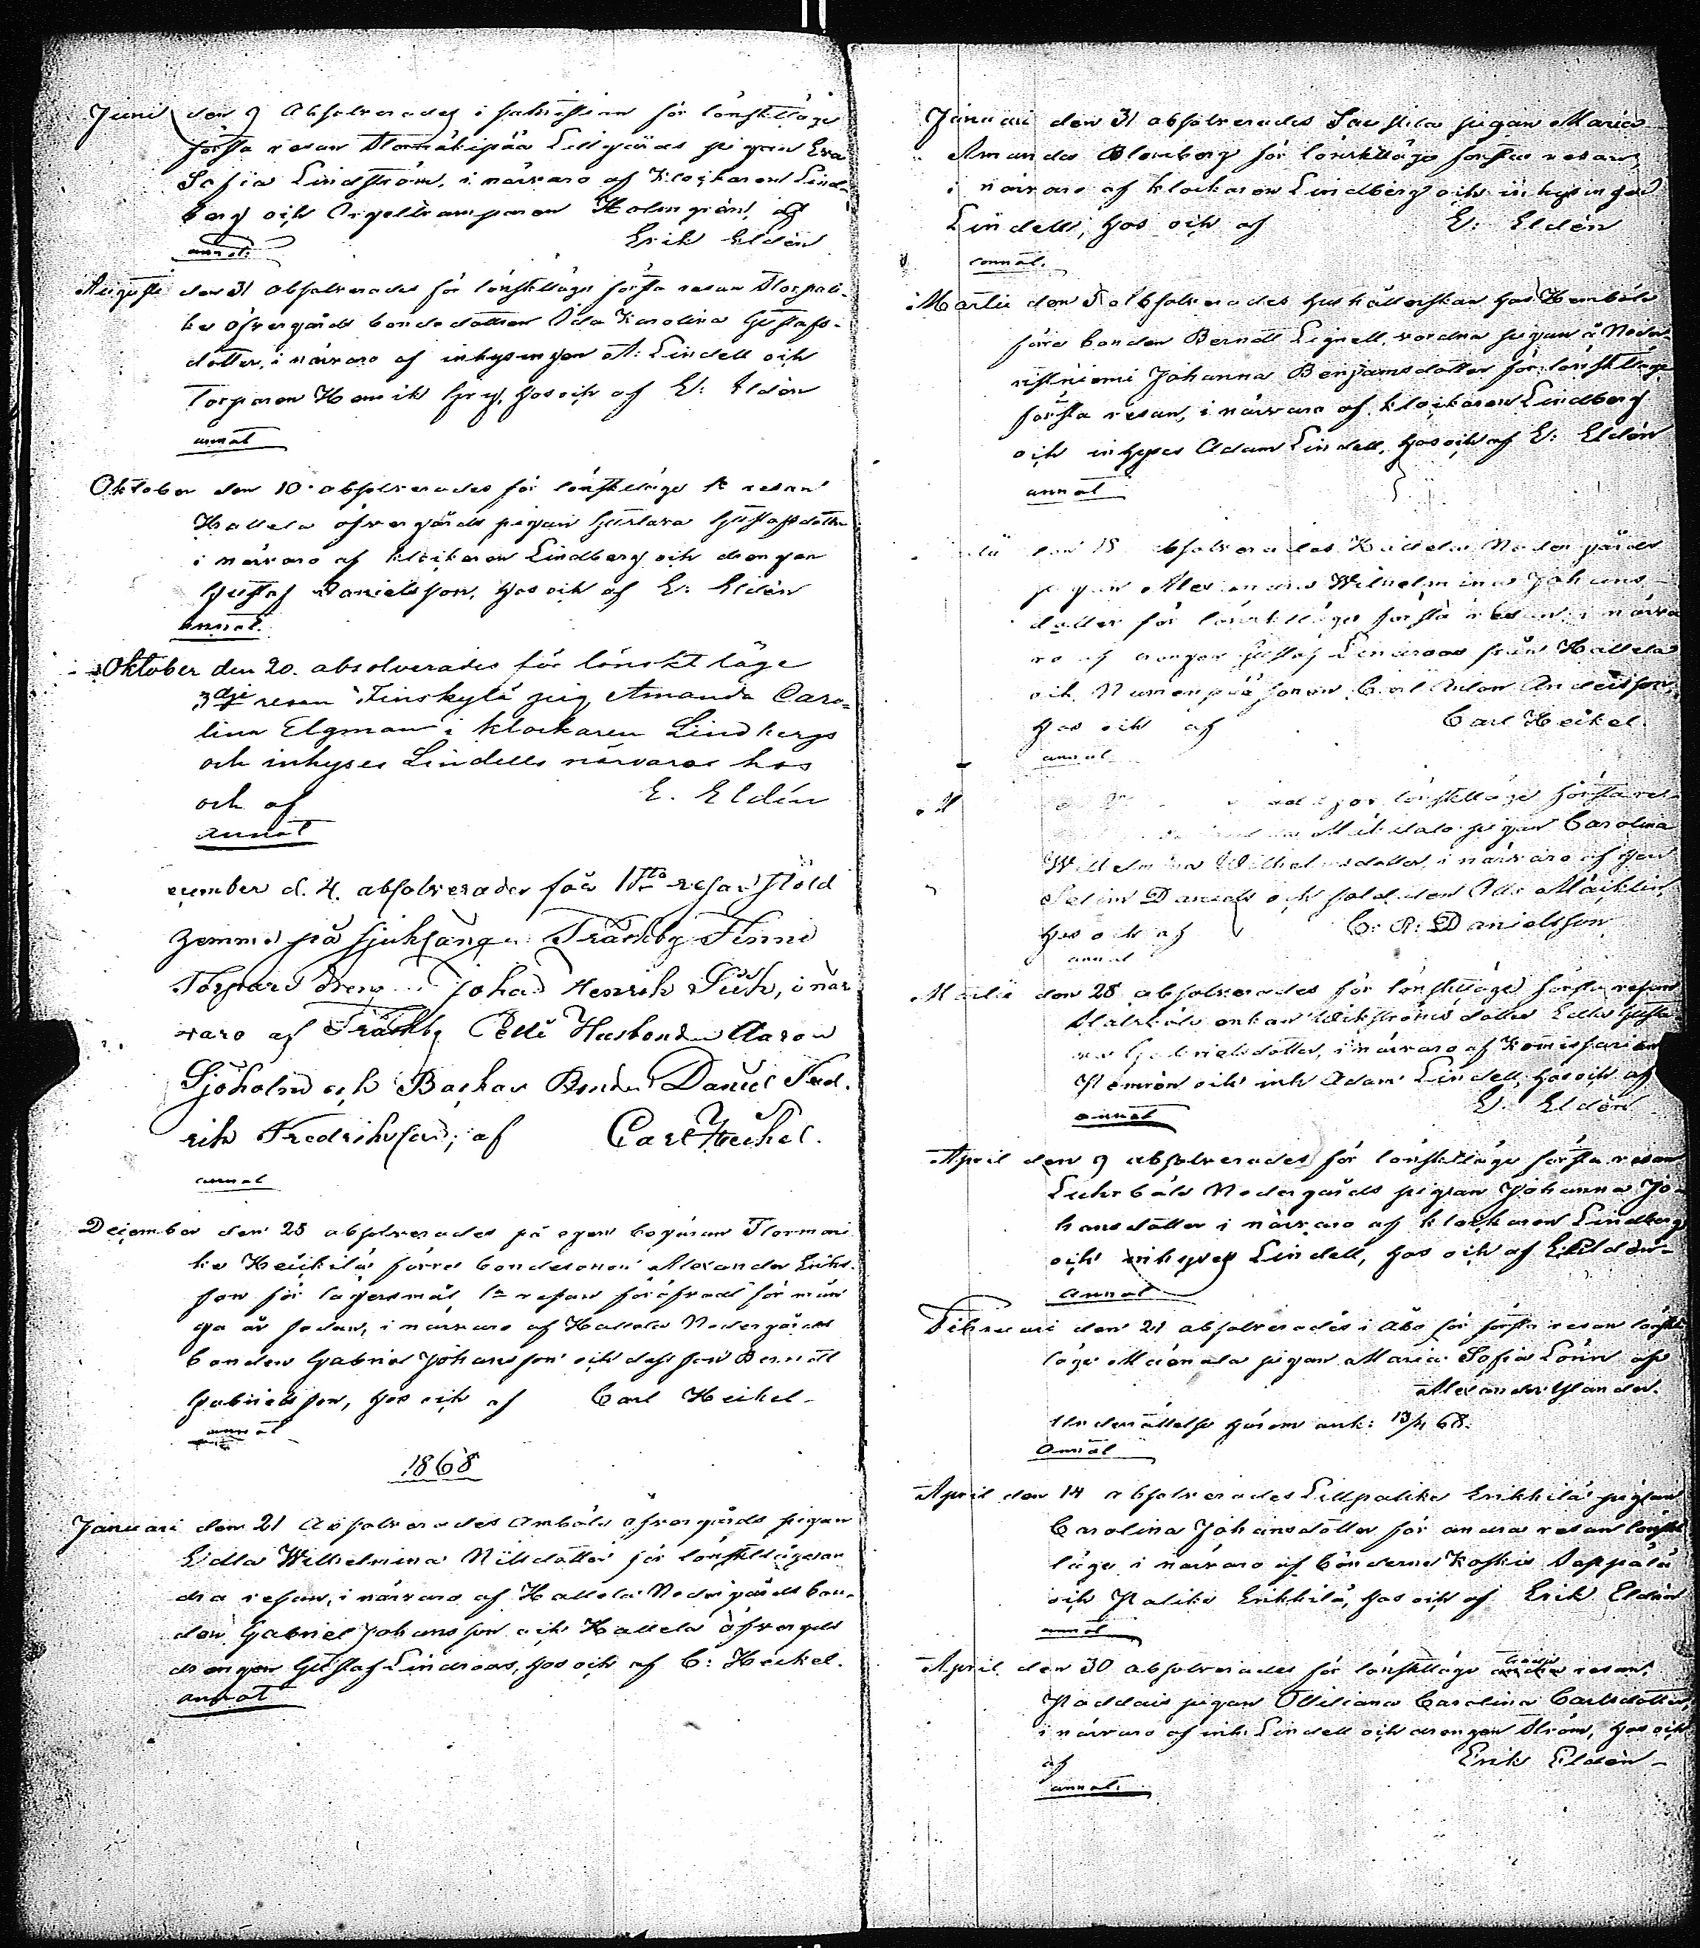 Juni den 9 Absolverades i sakristian för lönskt läge
första resan Stormäkipää Lillgårds pigan Eva
Sofia Lindström, i närvaro af klockaren Lind-
berg och Orgeltramparen Holmgrén, af
Erik Eldén
annot.
Augusti den 31 absolverades för lönskt läge första resan Storpali-
ke Öfvergårds bondedottren Ida Karolina Gustafs-
dotter, i närvaro af inhysingen A: Lindell och
Torparen Henrik Grej, hos och af E: Eldén
annot
Oktober den 10 absolverades för lönskt läge 1a resan
Hallela öfvergårds pigan Gustava Gustafsdotter
i närvaro af klockaren Lindberg och drengen
Gustaf Danielsson, hos och af E: Eldén
annot.
Oktober den 20. absolverades för lönskt läge
3dje resan Finskylä pig. Amanda Caro-
lina Elgman i klockaren Lindbergs
och inhyses Lindells närvaro hos
och af E. Eldén
annot
cember d. 4. absolverades för 1sta resan stöld
hemma på sjuksäng Träskby Finne
Torpare Johan Henrik i när
varo af Träskby Pelli Husbonden Aaron
Sjöholm och Backas Bonden Daniel Fred-
rik Fredriksson; af Carl Heikel.
annot
December den 28 absolverades på egen begäran Stormari
ke Heikkilä förre bondesonen Alexander Eriks-
son för lägersmål 1a resan föröfvad för mån
ga år sedan, i närvaro af Hallela Nedergårds
bonden Gabriel Johansson och dess son Berndt
Gabrielsson, hos och af Carl Heikel.
annot
1868
Januari den 21 Absolverades Ambåle öfvergårds pigan
Edla Wilhelmina Nilsdotter för lönskt läge an
dra resan, i närvaro af Hallela Nedergårds bon-
den Gabriel Johansson och Hallela öfvergårds
drengen Gustaf Lindroos, hos och af C: Heikel.
annot
Januari den 31 absolverades Saustila pigan Maria
Amanda Blomberg för lönskt läge första resan,
i närvaro af klockaren Lindberg och inhysingen
Lindell, hos och af E: Eldén
annot.
Martii den absolverades hushållerskan hos Hemböle
förre bonden Berndt Lignell, vordna pigan å Neder-
ristniemi Johanna Benjamsdotter för lönskt läge
första resan, i närvaro af klockaren Lindberg
och inhyses Adam Lindell, hos och af E: Eldén
annot
den 15 absolverades Hallela Nedergårds
pigan Alexandra Wilhelmina Johans-
dotter för lönskt läge första resan i närva
ro af drengen Gustaf Lindroos från Hallela
och Numenpää sonen Carl Anton Andersson,
hos och af Carl Heikel.
annot
för lönskt läge första res-
pigan Carolina
Wilhelmina Wilhelmsdotter, i närvaro af
och soldaten
hos och af C: R: Danielsson
annot
Martii den 28 absolverades för lönskt läge första resan
enkan Wikströms dotter Edla Gusta-
va Gabrielsdotter, i närvaro af Komissarien
Nemrén och inh. Adam Lindell, hos och af
annot E: Eldén
April den 9 absolverades för lönskt läge första resan
Nedergårds pigan Johanna Jo-
hansdotter i närvaro af klockaren Lindberg
och inhyses Lindell, hos och af E. Eldén
annot
Februari den 21 absolverades i Åbo för första resan lönskt
läge pigan Maria Sofia Lönn af
Alexander
Underrättelse härom ank: 13/4 68.
annot
April den 14 absolverades Lillpalike Erikkilä pigan
Carolina Johansdotter för andra resan lönskt
läge i närvaro af bönderne Koskis Seppälä
och Palike Erikkilä, hos och af Erik Eldén
annot
April den 30 absolverades för lönskt läge tredje resan,
Paddais pigan Carolina Carlsdotter,
i närvaro af inh. Lindell och drengen Ström, hos och
af Erik Eldén
annot.